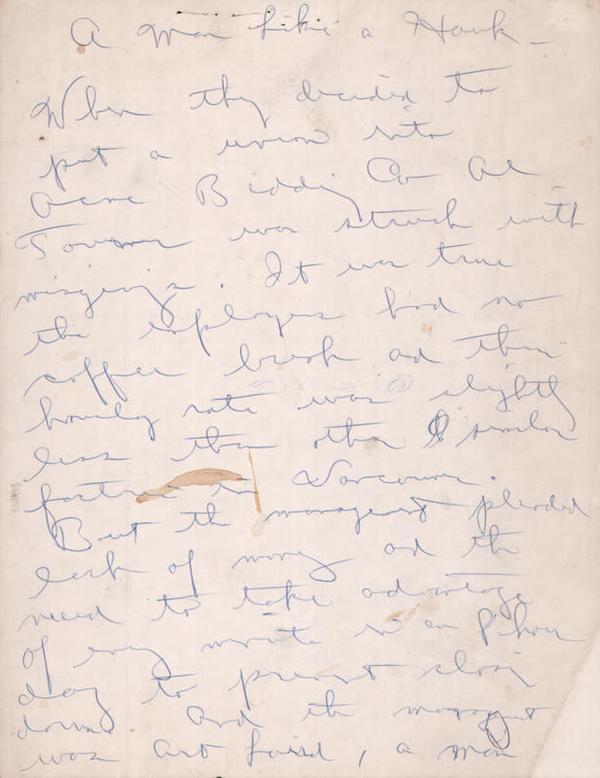 A Man Like a Hawk -
When they decided to
put a union into
Acme Bidding Co Al
was struck with
misgivings. It was true
the employees had no
coffee break and their
hourly rate was slightly
less than other similar
factories in Vancouver.
But the management pleaded
lack of money and the
need to take advantage
of every minute in an 8 hour
day to prevent closing
down. And the management
was Art Laird, a man